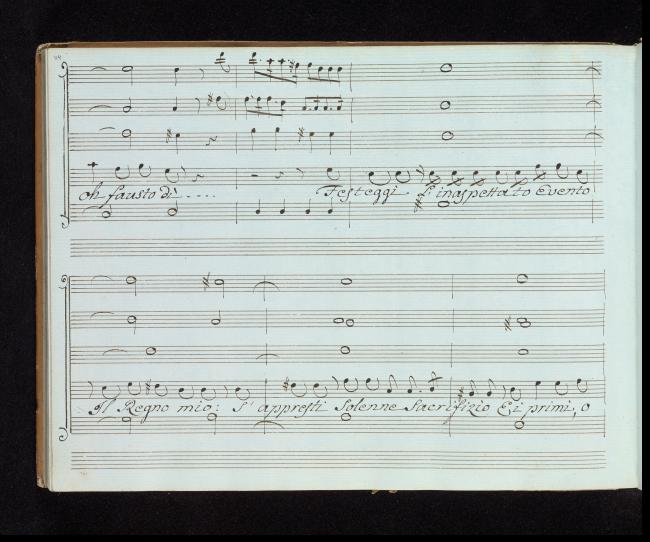 oh fausto dì .... Festeggi L'inaspettato Evento
Il Regno mio: S'appresti Solenne Sacrifizio E i primi, o